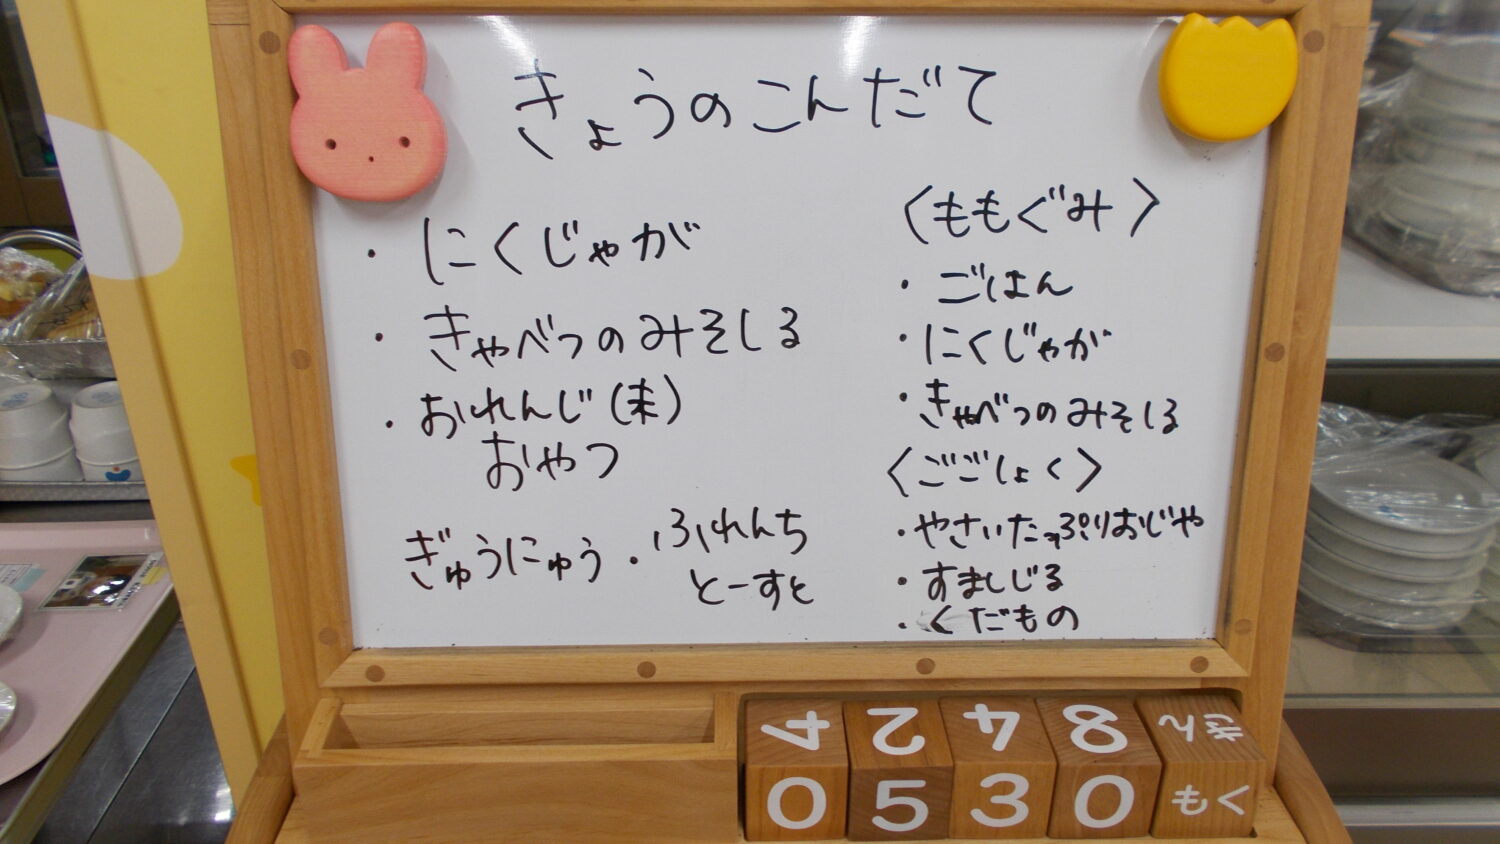 きょうのこんだて
・にくじゃが
・きゃべつのみそしる
・おれんじ(末)
おやつ
ぎゅうにゅう・ふれんち
とーすと
〈ももぐみ〉
・ごはん
・にくじゃが
・きゃべつのみそしる
〈ごごしょく〉
・やさいたっぷりおじや
・すましじる
・くだもの
4 2 4 8 きん
0 5 3 0 もく